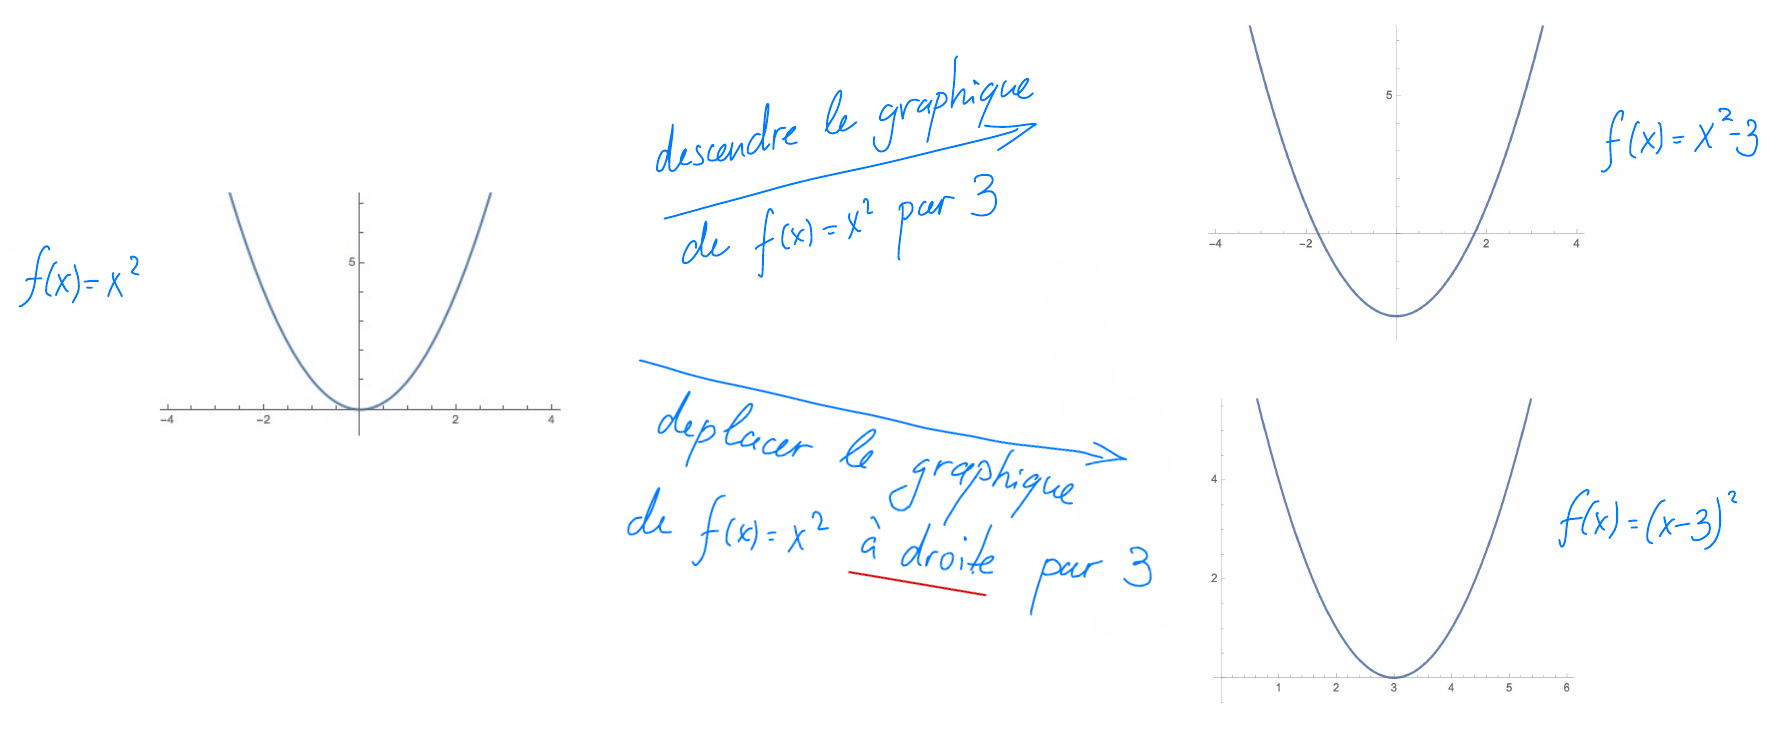 f(x)=x²
5
-4
-2
2
4
descendre le graphique
de f(x)=x² par 3
5
-4
-2
2
4
f(x)=x²-3
deplacer le graphique
de f(x)=x² à droite par 3
4
2
1
2
3
4
5
6
f(x)=(x-3)²